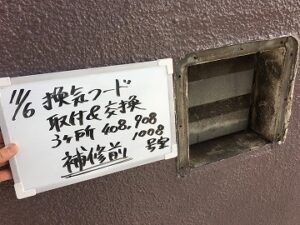 11/6 換気フード
取付&交換
3ヶ所 408,908
1008
号室
補修前